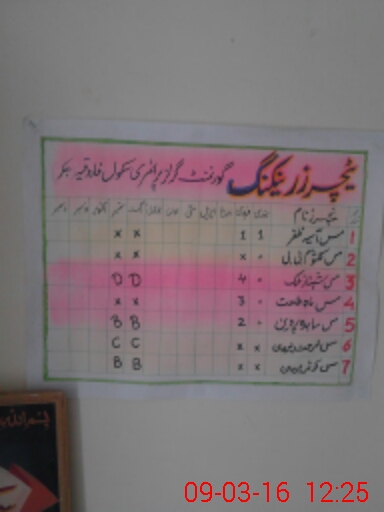 ٹیچرز رینکنگ گورنمنٹ گرلز پرائمری سکول فاروقیہ بھکر
نمبر ٹیچرز نام جنوری فروری مارچ اپریل مئی جون جولائی اگست ستمبر اکتوبر نومبر دسمبر
1 مس آسیہ ظفر 1 1 x x
2 مس کلثوم بی بی x x x
3 مس شہناز ملک 4 D D
4 مس 3 x x
5 مس ساجدہ پروین 2 B B
6 مس x x C C
7 مس x x B B
بسم اللہ
09-03-16 12:25